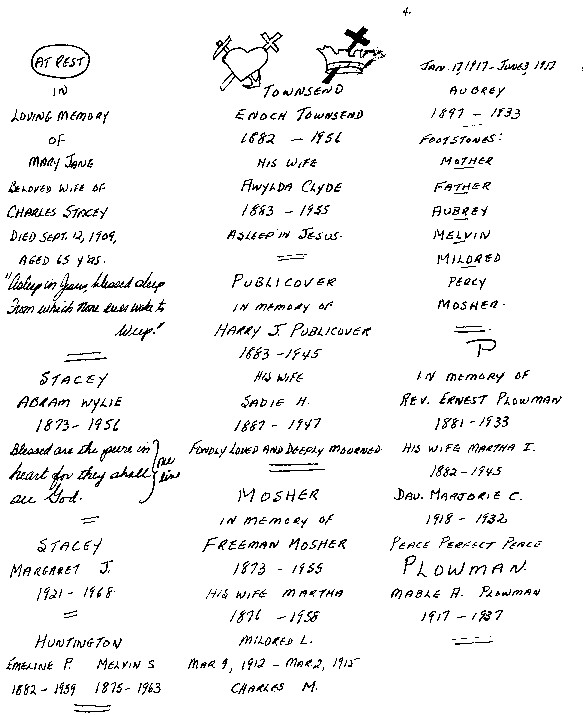 4.
AT REST
IN
LOVING MEMORY
OF
MARY JANE
BELOVED WIFE OF
CHARLES STACEY
DIED SEPT. 12, 1909,
AGED 65 YRS.
"Asleep in Jesus, blessed sleep
From which none ever wake to
Weep."
STACEY
ABRAM WYLIE
1873 - 1956
Blessed are the pure in
heart for they shall
see God.
one
line
STACEY
MARGARET J.
1921 - 1968
HUNTINGTON
EMELINE P. MELVIN S
1882 - 1959 1875 - 1963
TOWNSEND
ENOCH TOWNSEND
1882 - 1956
HIS WIFE
AWYLDA CLYDE
1883 - 1955
ASLEEP IN JESUS.
PUBLICOVER
IN MEMORY OF
HARRY J. PUBLICOVER
1883 - 1945
HIS WIFE
SADIE H.
1887 - 1947
FONDLY LOVED AND DEEPLY MOURNED
MOSHER
IN MEMORY OF
FREEMAN MOSHER
1873 - 1955
HIS WIFE MARTHA
1876 - 1958
MILDRED L.
MAR 9, 1912 - MAR 2, 1915
CHARLES M.
JAN. 17, 1917 - JUNE 3, 1917
AUBREY
1897 - 1933
FOOTSTONES:
MOTHER
FATHER
AUBREY
MELVIN
MILDRED
PERCY
MOSHER.
P
IN MEMORY OF
REV. ERNEST PLOWMAN
1881 - 1933
HIS WIFE MARTHA I.
1882 - 1945
DAU. MARJORIE C.
1918 - 1932
PEACE PERFECT PEACE
PLOWMAN.
MABLE A. PLOWMAN
1917 - 1937